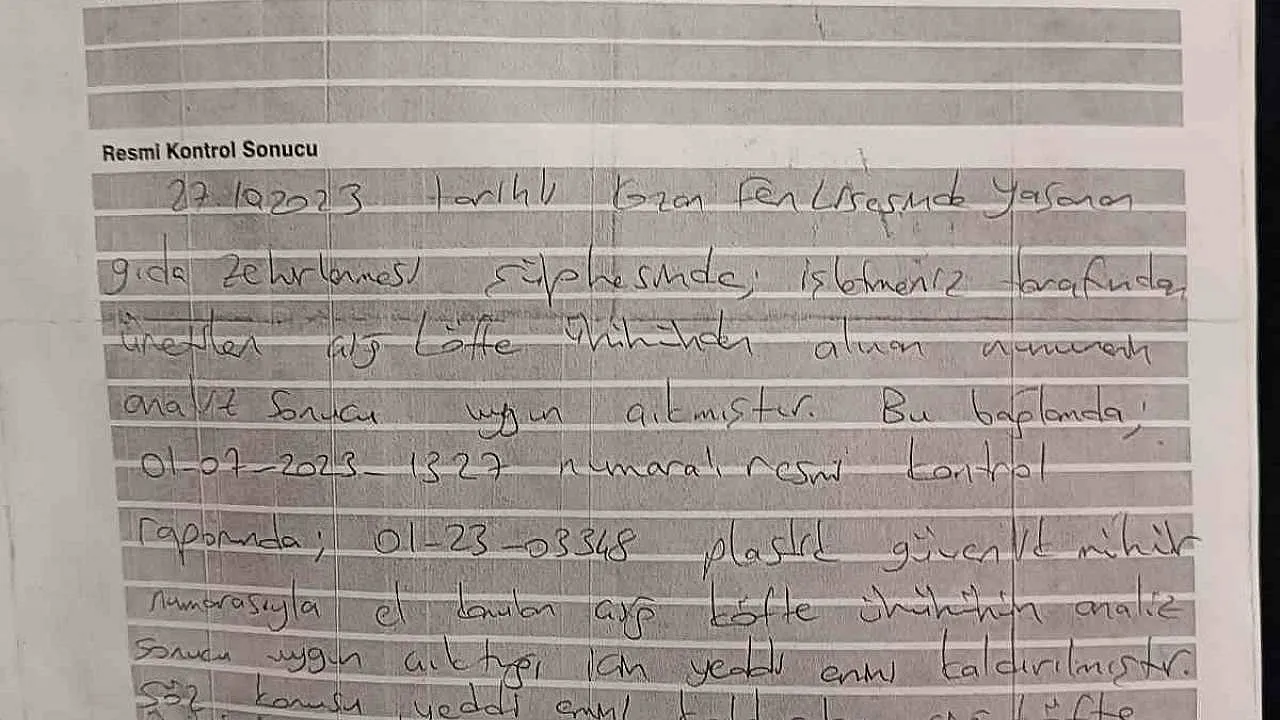 Resmi Kontrol Sonucu
27.10.2023 tarihli Kozan Fen Lisesinde yaşanan
gıda zehirlenmesi şüphesinde; işletmeniz tarafından
üretilen çiğ köfte ürününden alınan numunenin
analiz sonucu uygun çıkmıştır. Bu bağlamda;
01-07-2023-1327 numaralı resmi kontrol
raporunda; 01-23-03348 plastik güvenlik mühür
numarasıyla el konulan çiğ köfte ürününün analiz
sonucu uygun çıktığı için yeddi emni kaldırılmıştır.
Söz konusu yeddi emni köfte